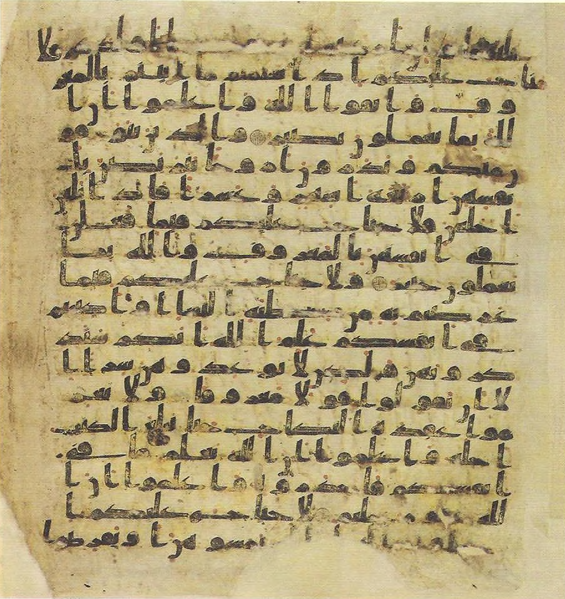 عليهما وان اردتم ان تسترضعوا اولدكم فلا
جناح عليكم اذا سلمتم ما اتيتم بالمعر
وف واتقوا الله واعلموا ان ا
لله بما تعملون بصير والذين يتوفو
ن منكم ويذرون ازوجا يتربصن با
نفسهن اربعة اشهر وعشرا فاذا بلغن
اجلهن فلا جناح عليكم فيما فعلن
في انفسهن بالمعروف والله بما
تعملون خبير ولا جناح عليكم فيما
عرضتم به من خطبة النسا او اكننتم
في انفسكم علم الله انكم ستذ
كرونهن ولكن لا تواعدوهن سرا ا
لا ان تقولوا قولا معروفا ولا تعز
موا عقدة النكاح حتى يبلغ الكتب
اجله واعلموا ان الله يعلم ما في
انفسكم فاحذروه واعلموا ان ا
لله غفور حليم لا جناح عليكم ا
ن طلقتم النسا ما لم تمسوهن او تفرضوا